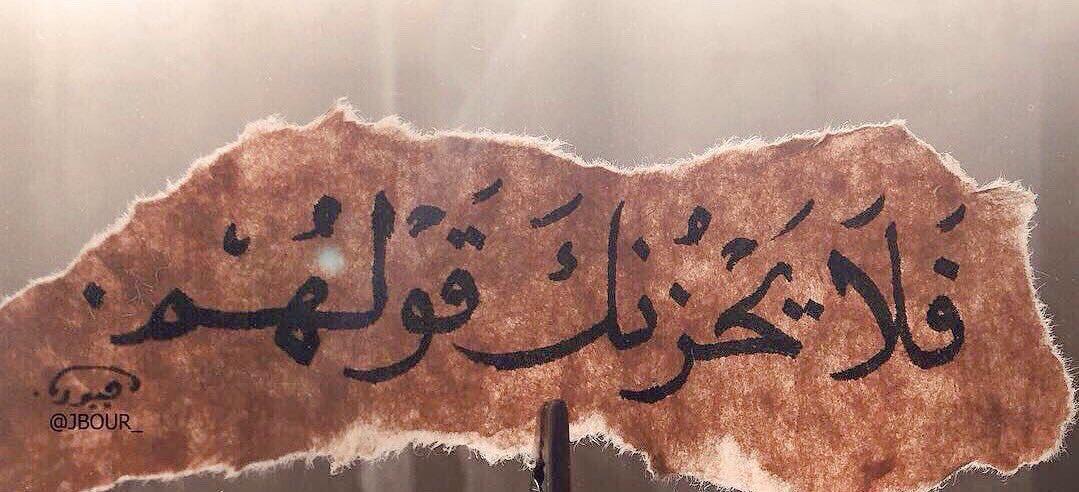 فَلَا يَحْزُنكَ قَوْلُهُمْ.
جبور
@JBOUR_